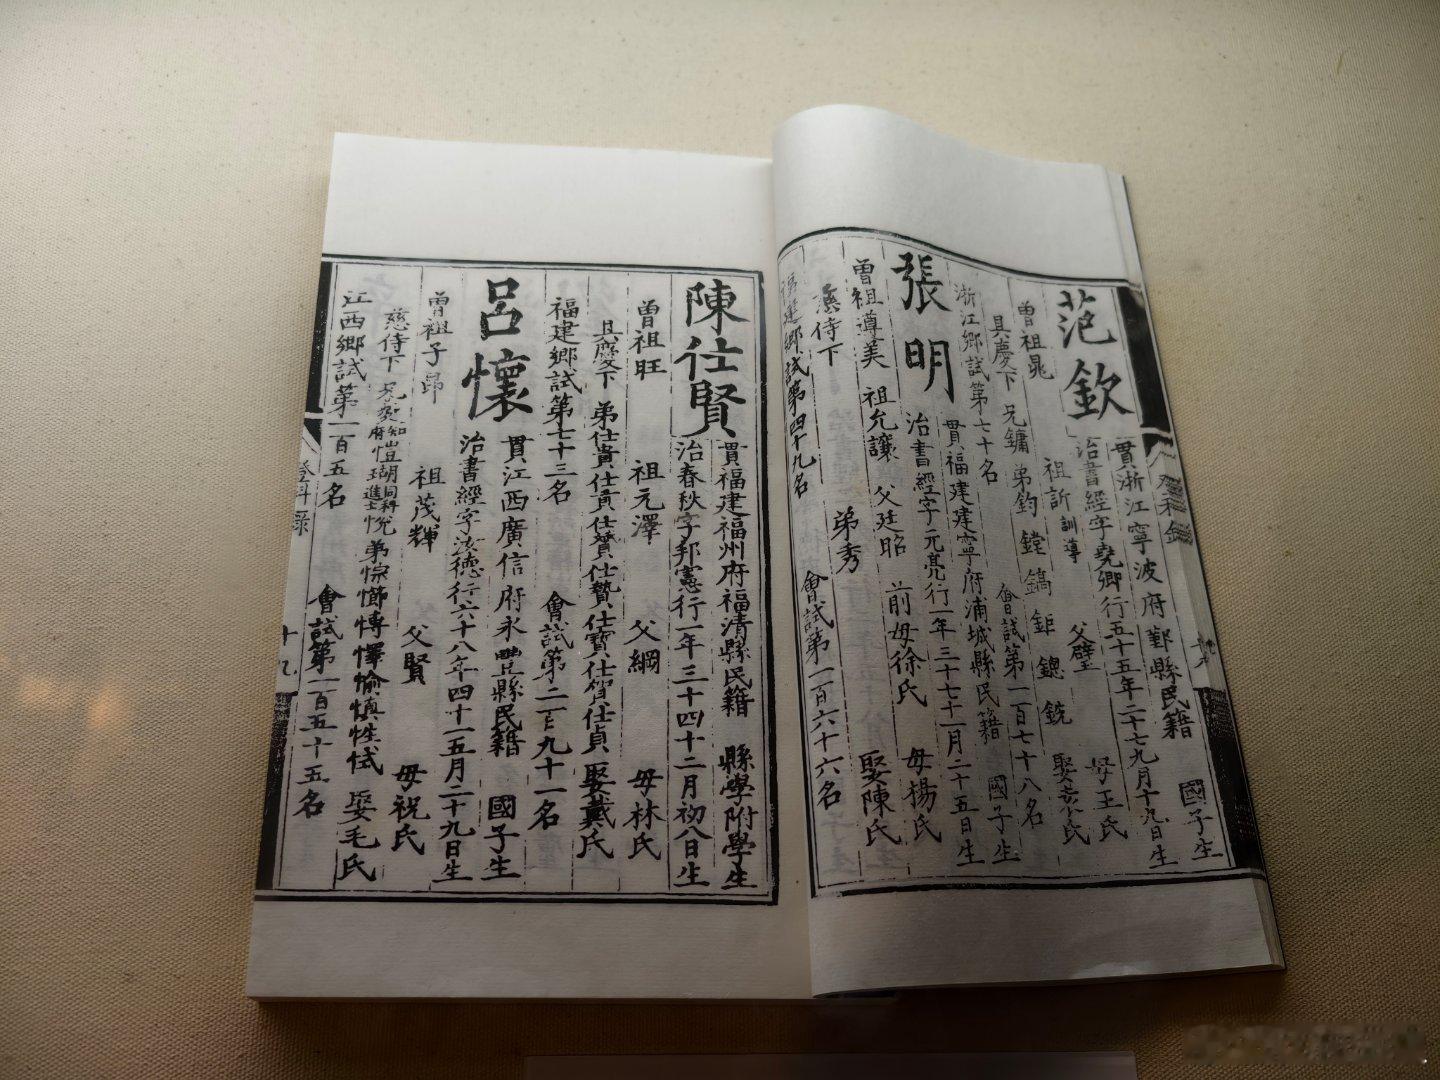 范欽
貫浙江寧波府鄞縣民籍 國子生
治書經字堯卿行五十五年二十九月十九日生
曾祖晁 祖訢訓導 父璧 母王氏
具慶下 兄鏞 弟鈞 鏜 鎬 鉅 鏓 銃 娶袁氏
浙江鄉試第七十名 會試第一百七十八名
張明
貫福建建寧府浦城縣民籍 國子生
治書經字元亮行一年三十七十一月二十五日生
曾祖遵美 祖允讓 父廷昭 前母徐氏 母楊氏
慈侍下 弟秀 娶陳氏
福建鄉試第四十九名 會試第一百六十六名
陳仕賢
貫福建福州府福清縣民籍 縣學附學生
治春秋字邦憲行一年三十四十二月初八日生
曾祖旺 祖元澤 父綱 母林氏
具慶下 弟仕貴仕賁仕贊仕贄仕寶仕賀仕貞 娶戴氏
福建鄉試第七十三名 會試第二百九十一名
呂懷
貫江西廣信府永豐縣民籍 國子生
治書經字汝德行六十八年四十一五月二十九日生
曾祖子昂 祖茂輝 父賢 母祝氏
慈侍下 兄 知府愷瑚同科進士悅 弟悰 慱懌愉慎性恜 娶毛氏
江西鄉試第一百五名 會試第一百五十五名
登科錄
十九